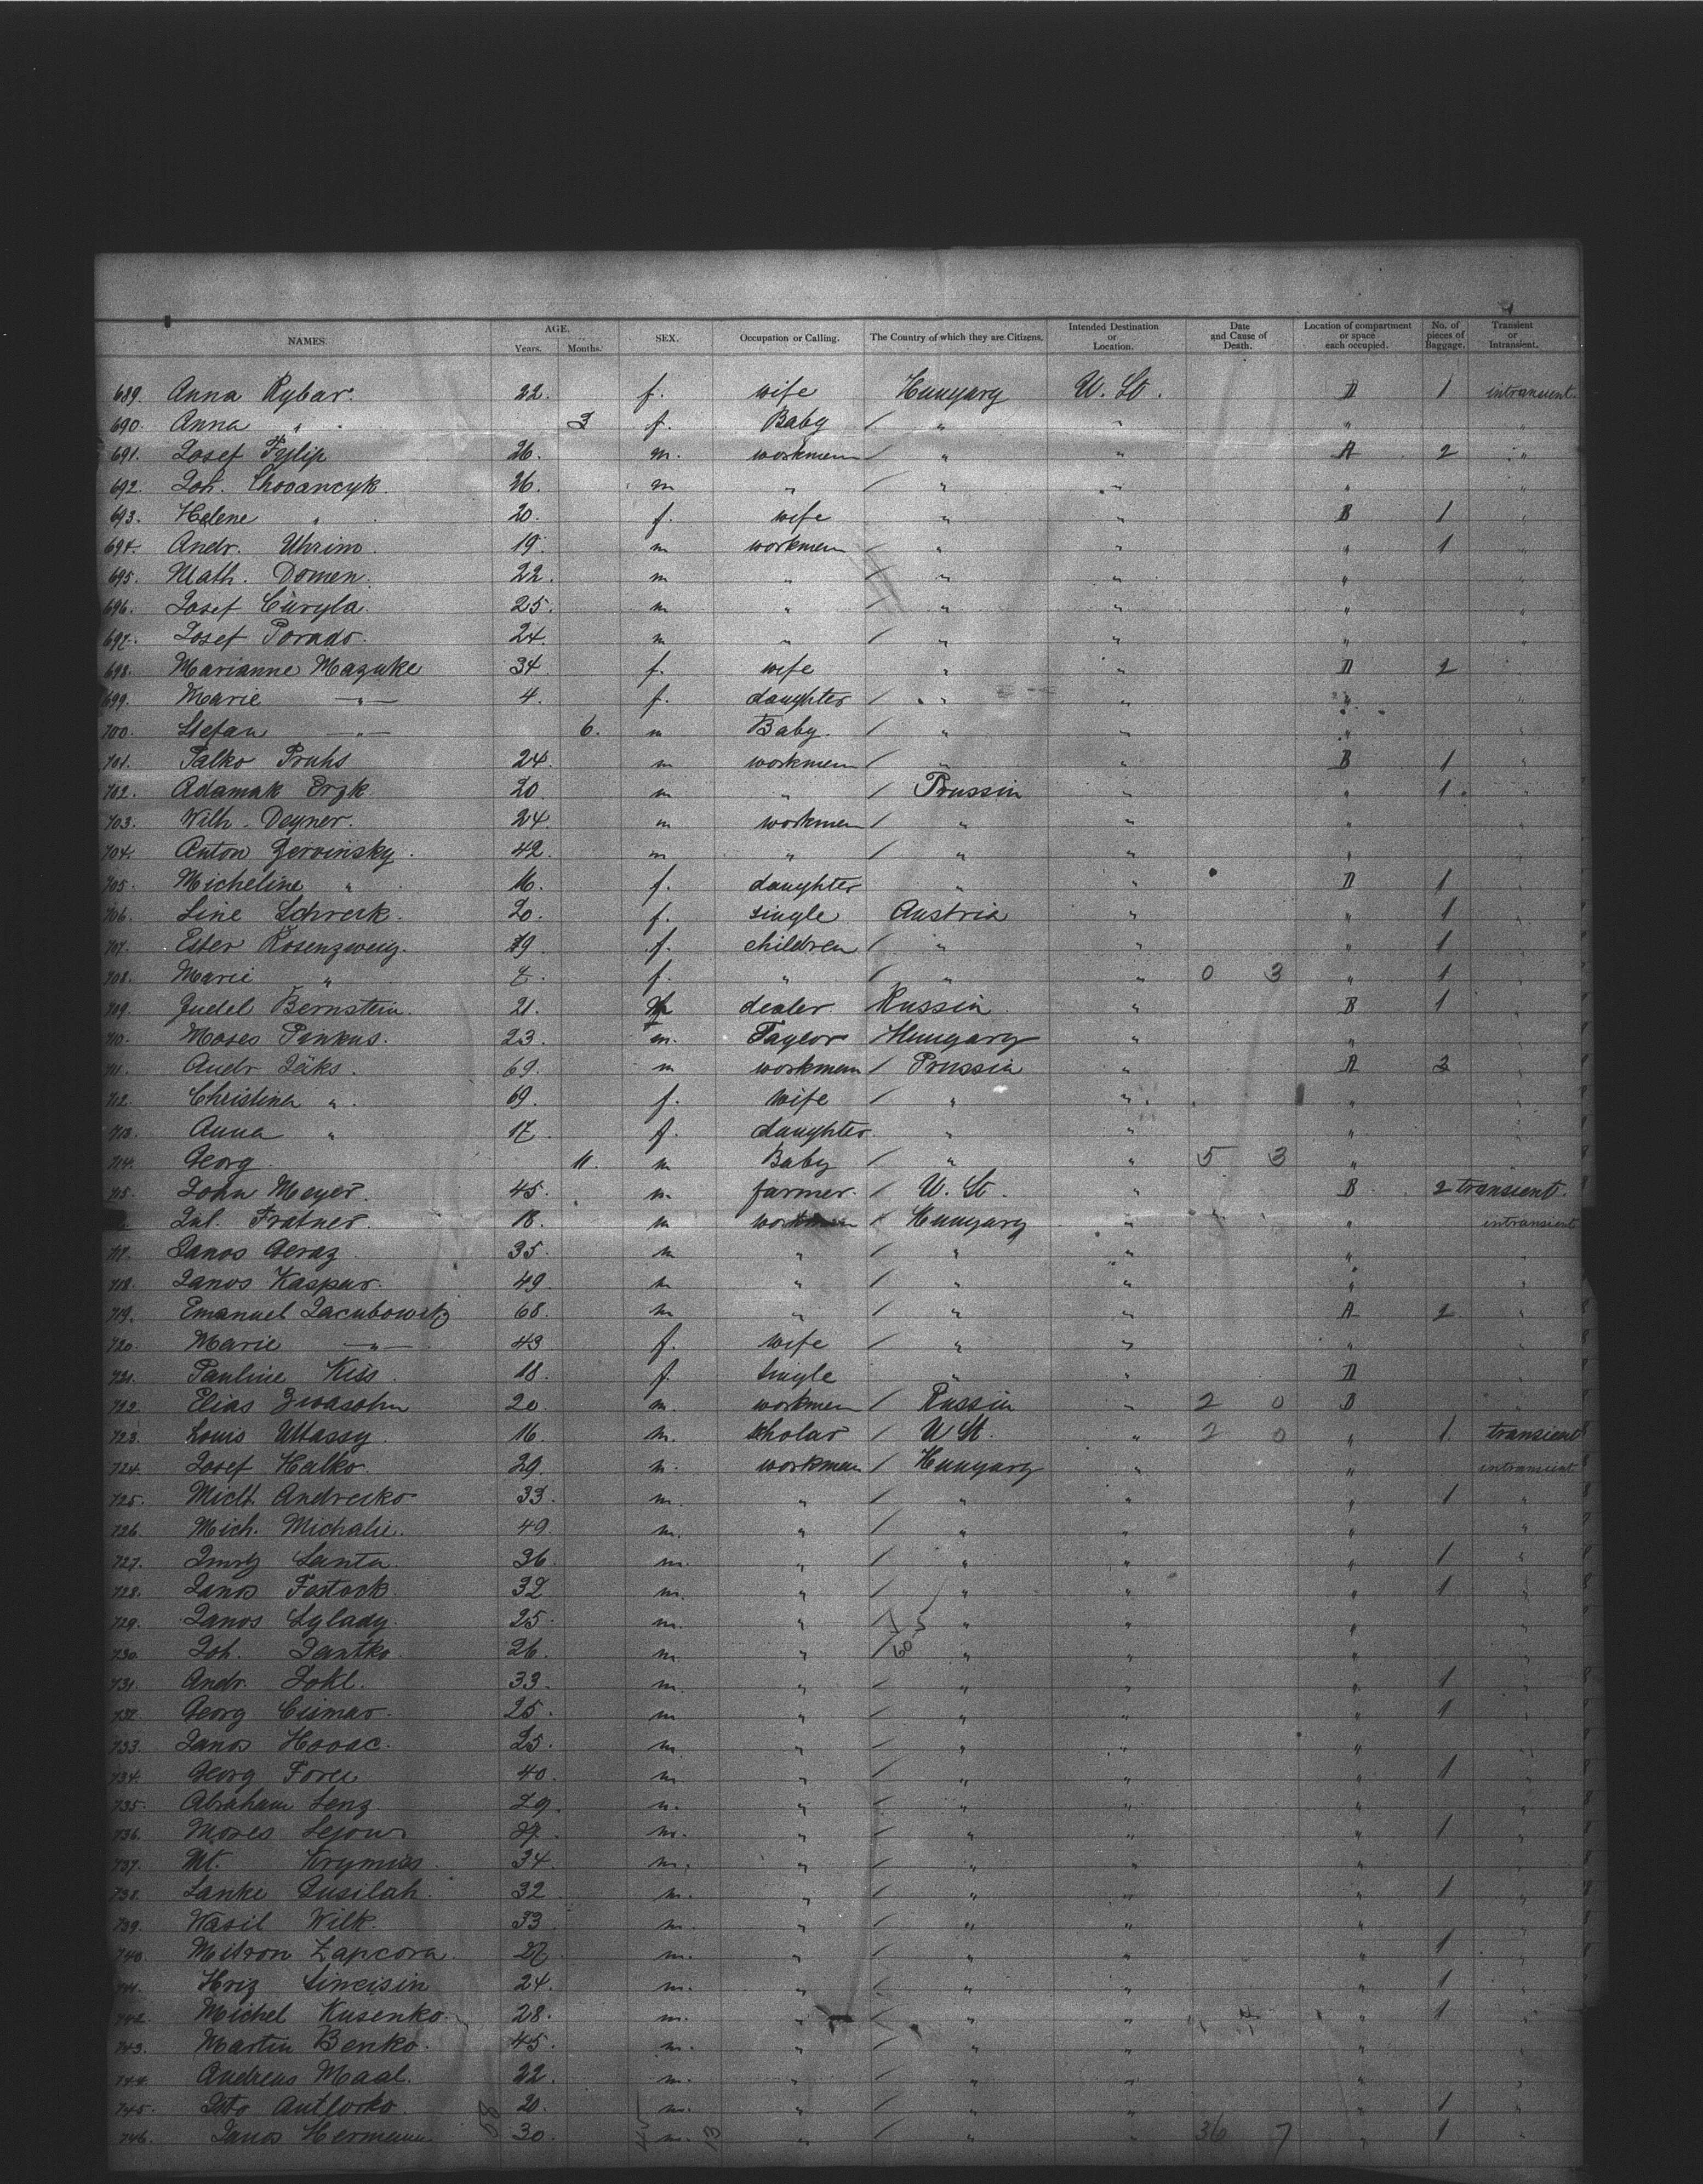 NAMES. AGE. Years. Months. SEX. Occupation or Calling. The Country of which they are Citizens. Intended Destination or Location. Date and Cause of Death. Location of compartment or space each occupied. No. of pieces of Baggage. Transient or Intransient.
689. Anna Rybar. 22. f. wife Hungary U. St. D 1 intransient.
690. Anna " 3 f. Baby / " " "
691. Josef Fylip 26. m. workmen / " " A 2 "
692. Joh. Chovancyk. 26. m " / " " " "
693. Helene " 20. f. wife " " B 1 "
694. Andr. Uhrim. 19. m workmen / " " " 1 "
695. Math. Domen. 22. m " / " " " "
696. Josef Curyla. 25. m " / " " " "
697. Josef Porado. 24 m " / " " " "
698. Marianne Mazuke 34 f. wife " " D 2
699. Marie " 4. f. daughter / " " " "
700. Stefan " 6. m Baby. / " " "
701. Palko Pruhs 24. m workmen / " " B 1 "
702. Adamak 20 m " / Prussia " " 1. "
703. Wilh. Deyner. 24. m workmen / " " "
704. Anton Zervinsky. 42. m " / " " " "
705. Micheline " 16. f. daughter " " D 1 "
706. Line Schreck. 20. f. single Austria " " 1 "
707. Ester Rosenzweig. 19 f. children / " " " 1 "
708. Marie " f. " / " " 0 3 " 1 "
709. Judel Bernstein. 21. dealer. Russia " B 1 "
710. Moses Pinkus. 23. m. Taylor Hungary " "
711. Andr. Jäks. 69. m workmen / Prussia " A "
712. Christina " 69. f. wife / " " " "
713. Anna " 17. f. daughter " " "
714. Georg 11. m Baby / " " 5 3 "
715. John Meyer. 45. m. farmer. / U. St. " B 2 transient.
Jul. Fratner. 18. m workmen / Hungary " " intransient
717. Janos Geraz 35. m " / " " " "
718. Janos Kaspar. 49 m " / " " " "
719. Emanuel Jacubowitz 68. m " / " " A 2 "
720. Marie " 43 f. wife / " " " "
721. Pauline Kiss. 18. f. single " " D
722. Elias 20. m. workmen / Russia " 2 0 "
723. Louis Utassy. 16. m. scholar / U St. " 2 0 " 1. transient
724. Josef Halko. 29. m. workmen / Hungary " " intransient
725. Mich. Andrecko 33. m. " / " " " 1 "
726. Mich. Michalic. 49. m. " / " " " "
727. Santa 36. m. " / " " " 1 "
728. Janos Fostack. 32 m. " / " " " 1 "
729. Janos Sylady. 25. m. " / " " " "
730. Joh. Jantko 26. m. " / 60 " " " "
731. Andr. Jokl. 33. m. " / " " " 1 "
732. Georg Cismar. 25. m " / " " " 1 "
733. Janos Hovac. 25. m " / " " " "
734. Georg 40. m " / " " " 1 "
735. Abraham Lenz 29. m. " / " " " "
736. Moses m. " / " " " 1 "
737. Mt. 34. m. " / " " " "
738. Lanke Jusilah. 32. m. " / " " " 1 "
739. Wasil Wilk. 33 m. " / " " " "
740. Mitron Zapcora. m. " / " " " 1 "
741. Hriz 24. m. " / " " " 1 "
742. Michel Kusenko. 28. m. " / " " " 1 "
743. Martin Benko. 45. m. " / " " " "
744. Andreas Maal. 22. m. " / " " " "
745. 20. m. " / " " " 1 "
746. Janos Hermann 30. m. " / " " 36 7 " 1 "
58 45 13